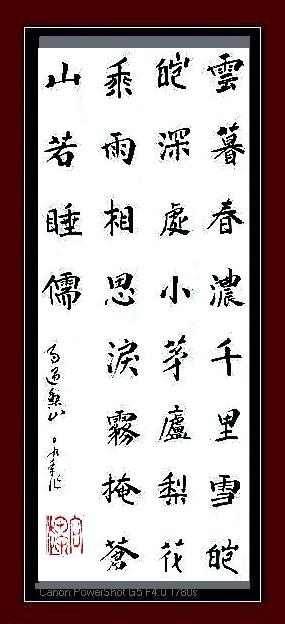 雲暮春濃千里雪皑
皑深處小茅廬梨花
乘雨相思淚霧掩蒼
山若睡儒
Canon PowerShot G5 F4.0 1/80s